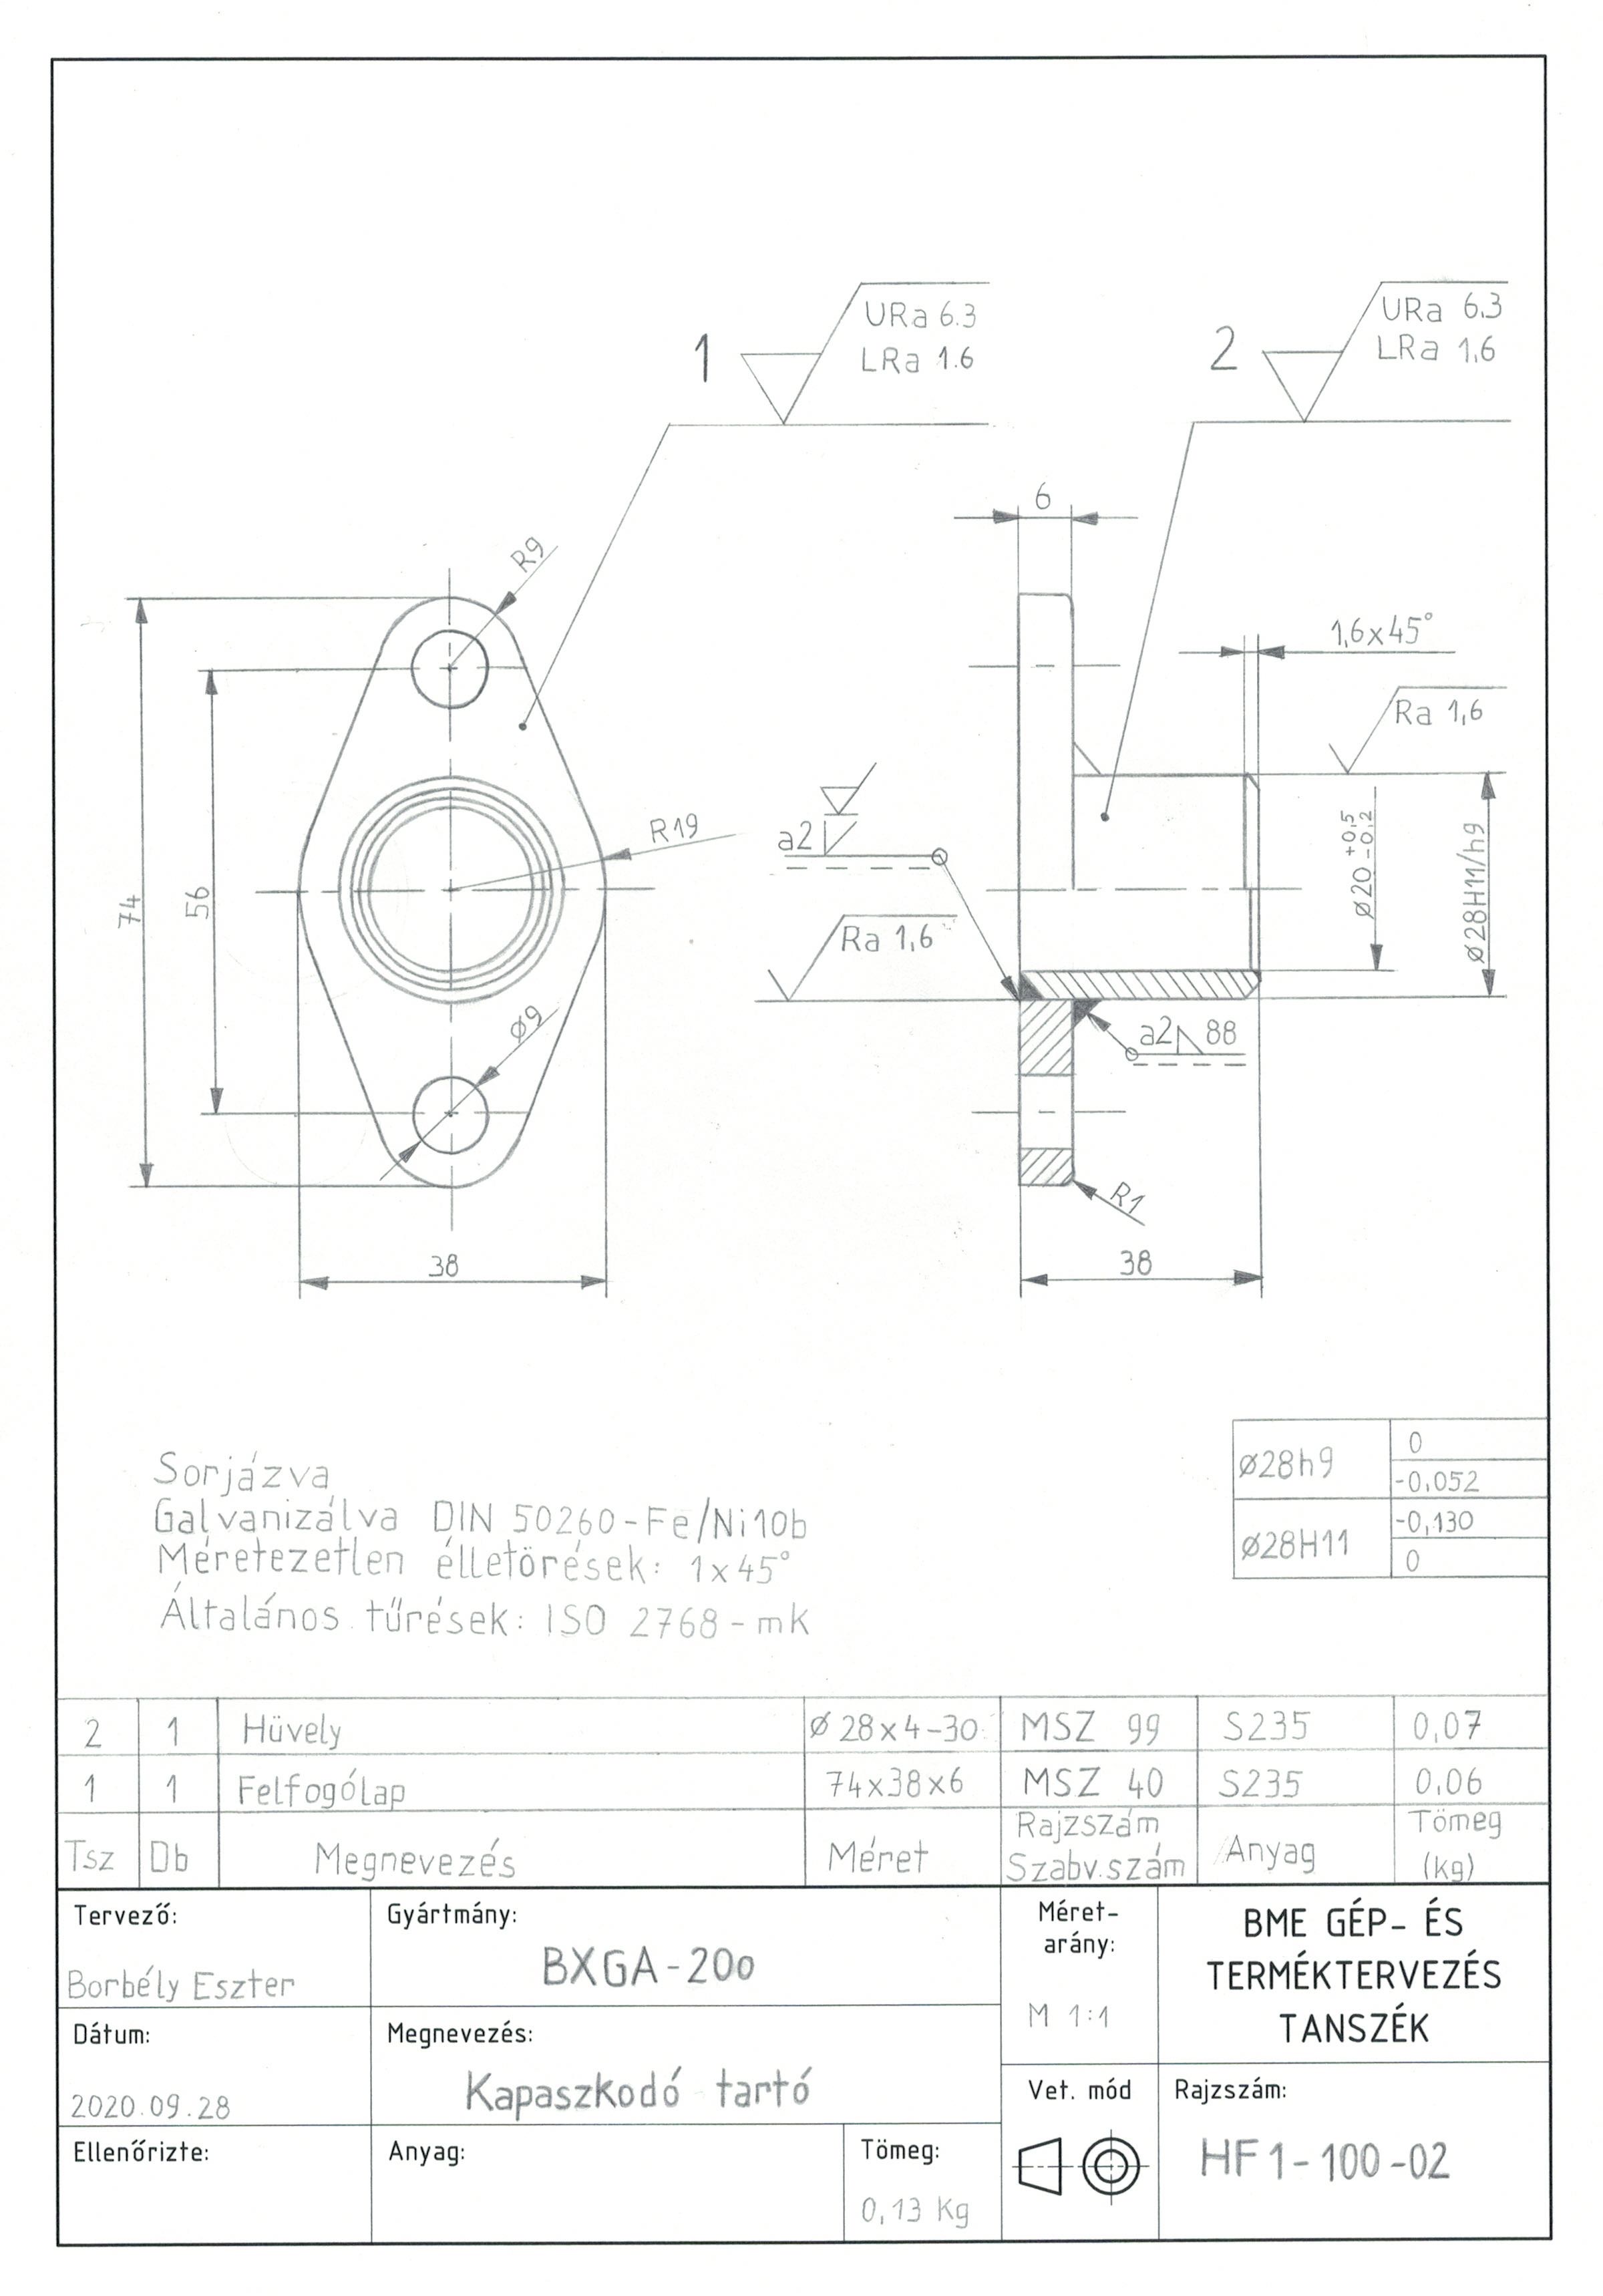 1
URa 6.3
LRa 1.6
2
URa 6.3
LRa 1,6
6
R9
1,6x45°
Ra 1,6
R19
a2
Ra 1,6
74
56
Ø20 +0,5 -0,2
Ø28H11/h9
Ø9
a2 88
R1
38
38
Ø28h9
0
-0,052
Ø28H11
-0,130
0
Sorjázva
Galvanizálva DIN 50260-Fe/Ni10b
Méretezetlen élletörések: 1x45°
Általános tűrések: ISO 2768-mk
2 1 Hüvely Ø 28x4-30 MSZ 99 S235 0,07
1 1 Felfogólap 74x38x6 MSZ 40 S235 0,06
Tsz Db Megnevezés Méret Rajzszám Szabv.szám Anyag Tömeg (kg)
Tervező:
Borbély Eszter
Gyártmány:
BXGA-20o
Méret-
arány:
M 1:1
BME GÉP- ÉS
TERMÉKTERVEZÉS
TANSZÉK
Dátum:
2020.09.28
Megnevezés:
Kapaszkodó tartó
Vet. mód
Rajzszám:
HF1-100-02
Ellenőrizte:
Anyag:
Tömeg:
0,13 Kg